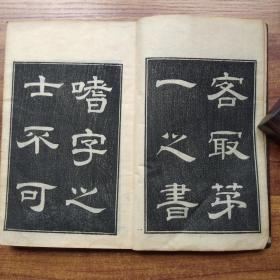 客取苐
一之書
嗜字之
士不可